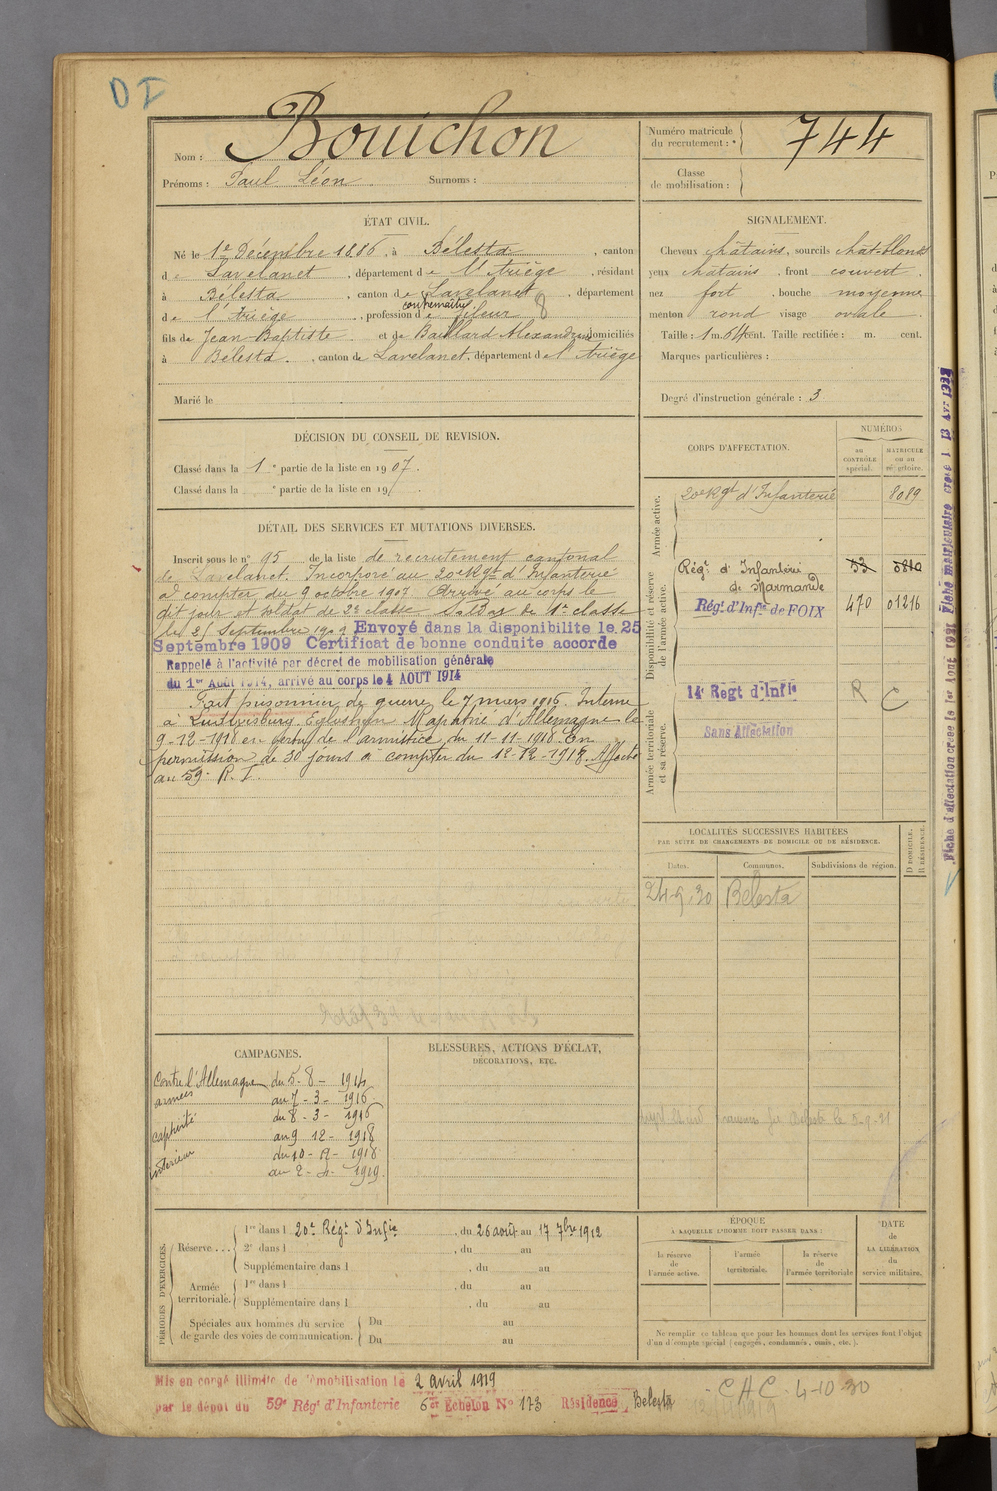 DI
Nom : Bouichon
Prénoms : Paul Léon Surnoms :
Numéro matricule du recrutement : 744
Classe de mobilisation :
ÉTAT CIVIL.
Né le 1er Décembre 1886, à Bélesta, canton
de Lavelanet, département de l'Ariège, résidant
à Bélesta, canton de Lavelanet, département
contremaître
de l'Ariège, profession de fileur 8
fils de Jean Baptiste et de Baillard Alexandrine domiciliés
à Bélesta, canton de Lavelanet, département de l'Ariège
Marié le
SIGNALEMENT.
Cheveux châtains, sourcils chât-blonds
yeux châtains, front couvert,
nez fort, bouche moyenne
menton rond visage ovale
Taille : 1 m. 64 cent. Taille rectifiée : m. cent.
Marques particulières :
Degré d'instruction générale : 3
DÉCISION DU CONSEIL DE REVISION.
Classé dans la 1e partie de la liste en 1907.
Classé dans la e partie de la liste en 19
DÉTAIL DES SERVICES ET MUTATIONS DIVERSES.
Inscrit sous le n° 95 de la liste de recrutement cantonal
de Lavelanet. Incorporé au 20e Rgt d'Infanterie
à compter du 9 octobre 1907 Arrivé au corps le
dit jour et soldat de 2e classe Soldat de 1e classe
le 25 Septembre 1909 Envoyé dans la disponibilite le 25
Septembre 1909 Certificat de bonne conduite accorde
Rappelé à l'activité par décret de mobilisation générale
du 1er Août 1914, arrivé au corps le 4 AOUT 1914
Fait prisonnier de guerre le 7 mars 1916. Interné
à Ludwisburg Eglosheim Rapatrié d'Allemagne le
9-12-1918 en vertu de l'armistice du 11-11-1918. En
permission de 30 jours à compter du 12-12-1918. Affecté
au 59e R. I.
CORPS D'AFFECTATION.
NUMÉROS
au CONTRÔLE spécial.
MATRICULE ou au répertoire.
Armée active.
20e Rgt d'Infanterie 8089
Disponibilité et réserve de l'armée active.
Régt d'Infanterie de Marmande 53 5810
Régt. d'Infie de FOIX 470 01216
Armée territoriale et sa réserve.
14e Regt d'Infie R C
Sans Affectation
Fiche d'affectation créée le 1er Aout 1921 Fiche matriculaire créée l 13 Avr 1931
LOCALITÉS SUCCESSIVES HABITÉES
PAR SUITE DE CHANGEMENTS DE DOMICILE OU DE RÉSIDENCE.
Dates. Communes. Subdivisions de région. D DOMICILE. R RÉSIDENCE.
24-9-30 Belesta
CAMPAGNES.
Contre l'Allemagne du 5-8-1914
armées au 7-3-1916
du 8-3-1916
captivité au 9 12-1918
intérieur du 10-12-1918
au 2-4-1919.
BLESSURES, ACTIONS D'ÉCLAT,
DÉCORATIONS, ETC.
PÉRIODES D'EXERCICES.
Réserve...
1re dans l 20e Régt d'Infie, du 26 août au 17 7bre 1912
2e dans l, du au
Supplémentaire dans l, du au
Armée territoriale.
1re dans l, du au
Supplémentaire dans l, du au
Spéciales aux hommes du service
de garde des voies de communication.
Du au
Du au
ÉPOQUE
À LAQUELLE L'HOMME DOIT PASSER DANS :
la réserve de l'armée active.
l'armée territoriale.
la réserve de l'armée territoriale
DATE de LA LIBÉRATION du service militaire.
Ne remplir ce tableau que pour les hommes dont les services font l'objet
d'un décompte spécial (engagés, condamnés, omis, etc.).
Mis en congé illimité de démobilisation le 2 avril 1919
par le dépot du 59e Régt d'Infanterie 6er Echelon N° 173 Résidence Belesta
CHC 4-10-30